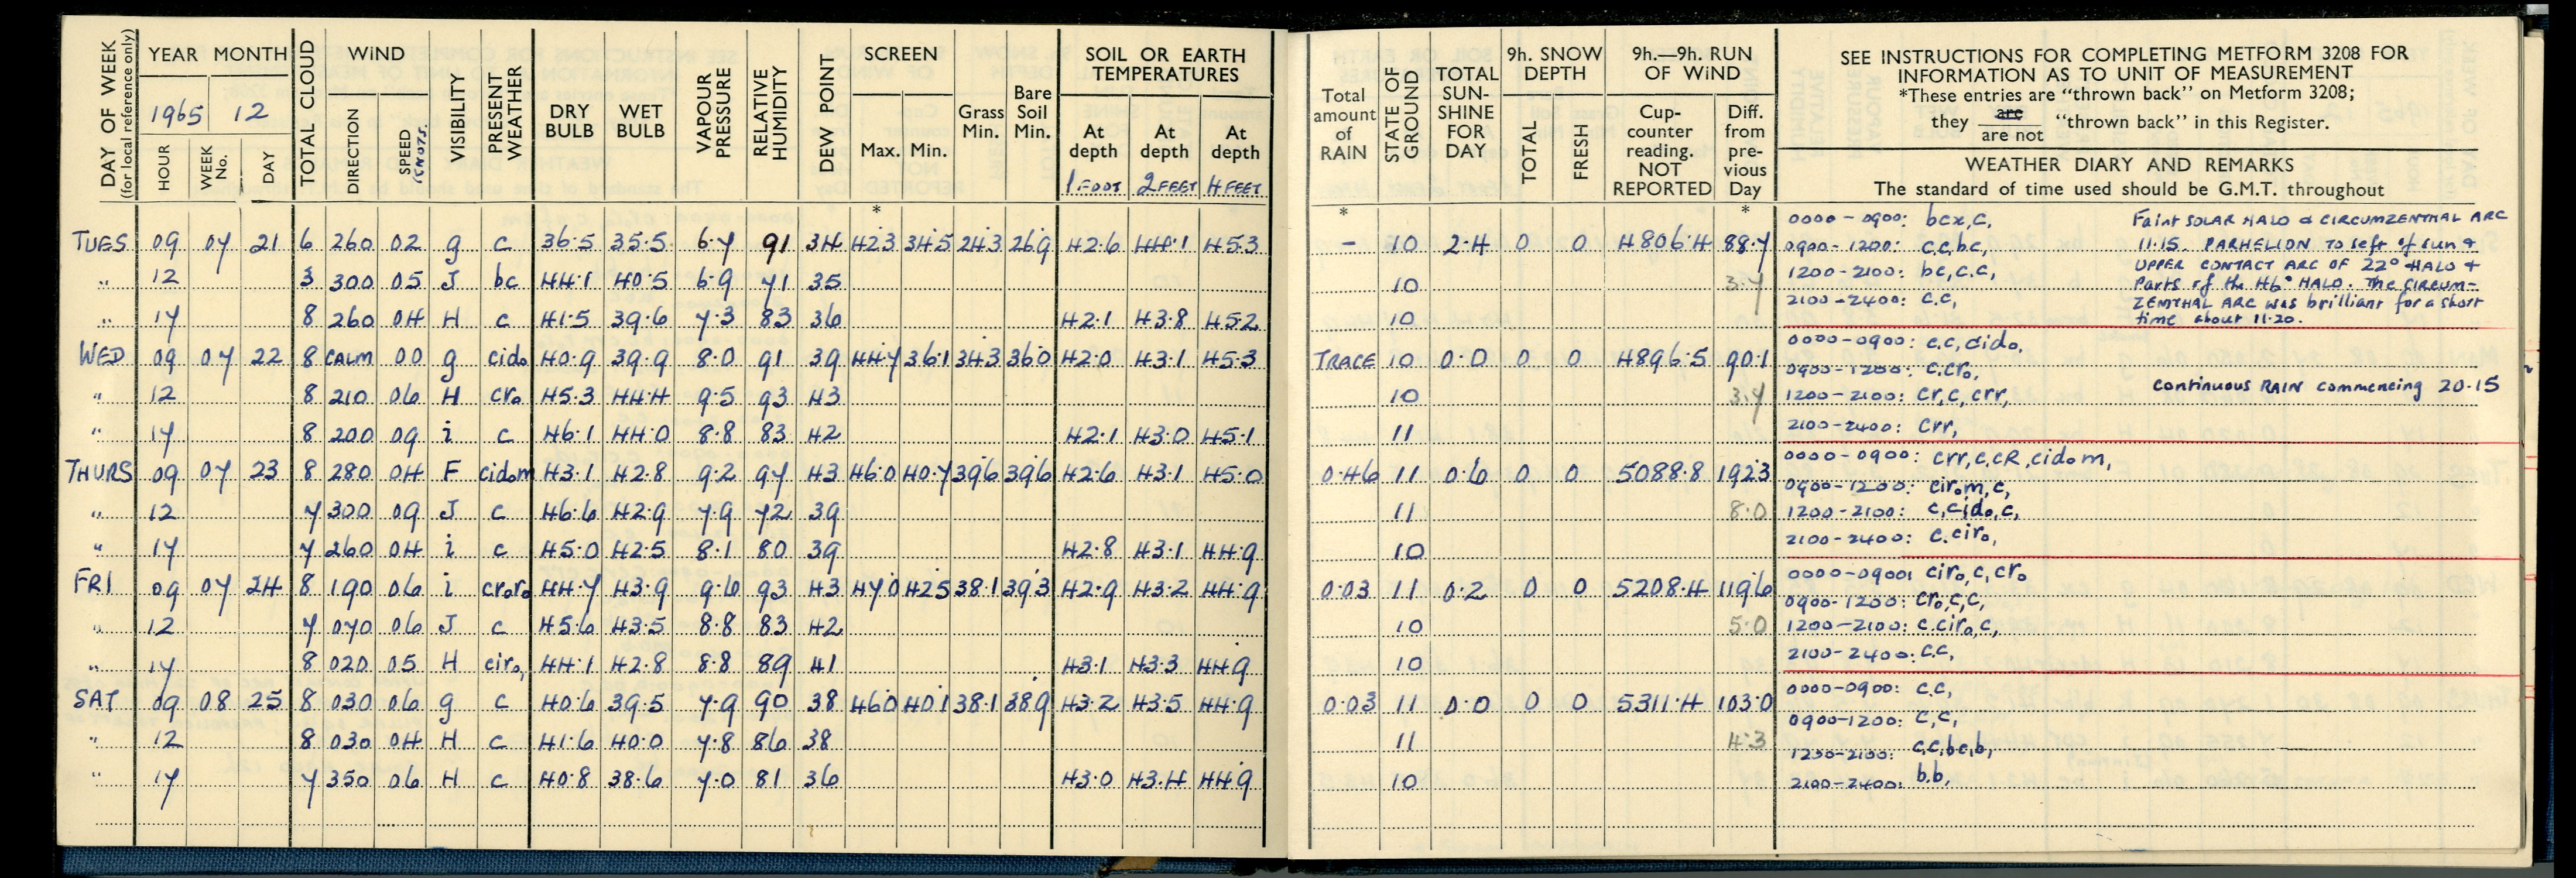 DAY OF WEEK (for local reference only) YEAR MONTH TOTAL CLOUD WIND VISIBILITY PRESENT WEATHER DRY BULB WET BULB VAPOUR PRESSURE RELATIVE HUMIDITY DEW POINT SCREEN Grass Min. Bare Soil Min. SOIL OR EARTH TEMPERATURES
1965 12
HOUR WEEK No. DAY DIRECTION SPEED KNOTS. Max. Min. At depth At depth At depth
1 FOOT 2 FEET 4 FEET
*
TUES 09 07 21 6 260 02 g c 36.5 35.5 6.7 91 34 42.3 34.5 24.3 26.9 42.6 44.1 45.3
" 12 3 300 05 J bc 44.1 40.5 6.9 71 35
" 17 8 260 04 H c 41.5 39.6 7.3 83 36 42.1 43.8 45.2
WED 09 07 22 8 CALM 00 g cido 40.9 39.9 8.0 91 39 44.7 36.1 34.3 36.0 42.0 43.1 45.3
" 12 8 210 06 H cro 45.3 44.4 9.5 93 43
" 17 8 200 09 i c 46.1 44.0 8.8 83 42 42.1 43.0 45.1
THURS 09 07 23 8 280 04 F cidom 43.1 42.8 9.2 97 43 46.0 40.7 39.6 39.6 42.6 43.1 45.0
" 12 7 300 09 J c 46.6 42.9 7.9 72 39
" 17 7 260 04 i c 45.0 42.5 8.1 80 39 42.8 43.1 44.9
FRI 09 07 24 8 190 06 i croro 44.7 43.9 9.6 93 43 47.0 42.5 38.1 39.3 42.9 43.2 44.9
" 12 7 070 06 J c 45.6 43.5 8.8 83 42
" 17 8 020 05 H ciro, 44.1 42.8 8.8 89 41 43.1 43.3 44.9
SAT 09 08 25 8 030 06 g c 40.6 39.5 7.9 90 38 46.0 40.1 38.1 38.9 43.2 43.5 44.9
" 12 8 030 04 H c 41.6 40.0 7.8 86 38
" 17 7 350 06 H c 40.8 38.6 7.0 81 36 43.0 43.4 44.9
Total amount of RAIN STATE OF GROUND TOTAL SUN-SHINE FOR DAY 9h. SNOW DEPTH 9h.—9h. RUN OF WIND
TOTAL FRESH Cup-counter reading. NOT REPORTED Diff. from pre-vious Day
* *
– 10 2.4 0 0 4806.4 88.7
10 3.7
10
TRACE 10 0.0 0 0 4896.5 90.1
10 3.7
11
0.46 11 0.6 0 0 5088.8 192.3
11 8.0
10
0.03 11 0.2 0 0 5208.4 119.6
10 5.0
10
0.03 11 0.0 0 0 5311.4 103.0
11 4.3
10
SEE INSTRUCTIONS FOR COMPLETING METFORM 3208 FOR
INFORMATION AS TO UNIT OF MEASUREMENT
*These entries are "thrown back" on Metform 3208;
they are / are not "thrown back" in this Register.
WEATHER DIARY AND REMARKS
The standard of time used should be G.M.T. throughout
0000 - 0900: bcx,c,
0900 - 1200: c.c,bc,
1200 - 2100: bc,c.c,
2100 - 2400: c.c,
Faint SOLAR HALO & CIRCUMZENTHAL ARC
11.15. PARHELION to left of sun +
UPPER CONTACT ARC OF 22° HALO +
Parts of the 46° HALO. The CIRCUM-
ZENTHAL ARC was brilliant for a short
time about 11.20.
0000-0900: c.c, cido,
0900-1200: c.cro,
1200-2100: cr,c,crr,
continuous RAIN commencing 20.15
2100-2400: crr,
0000-0900: crr,c,cR,cidom,
0900-1200: cirom,c,
1200-2100: c,cido,c,
2100-2400: c.ciro,
0000-0900: ciro,c,cro
0900-1200: cro,c,c,
1200-2100: c.ciro,c,
2100-2400: c.c,
0000-0900: c.c,
0900-1200: c,c,
1200-2100: c,c,bc,b,
2100-2400: b.b,